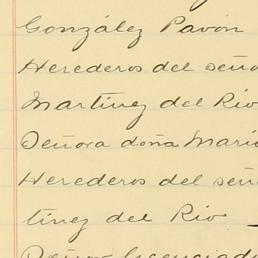 González Pavón
Herederos del seño
Martinez del Rio
Señora doña Maria
Herederos del seño
tinez del Rio
Señor licenciado